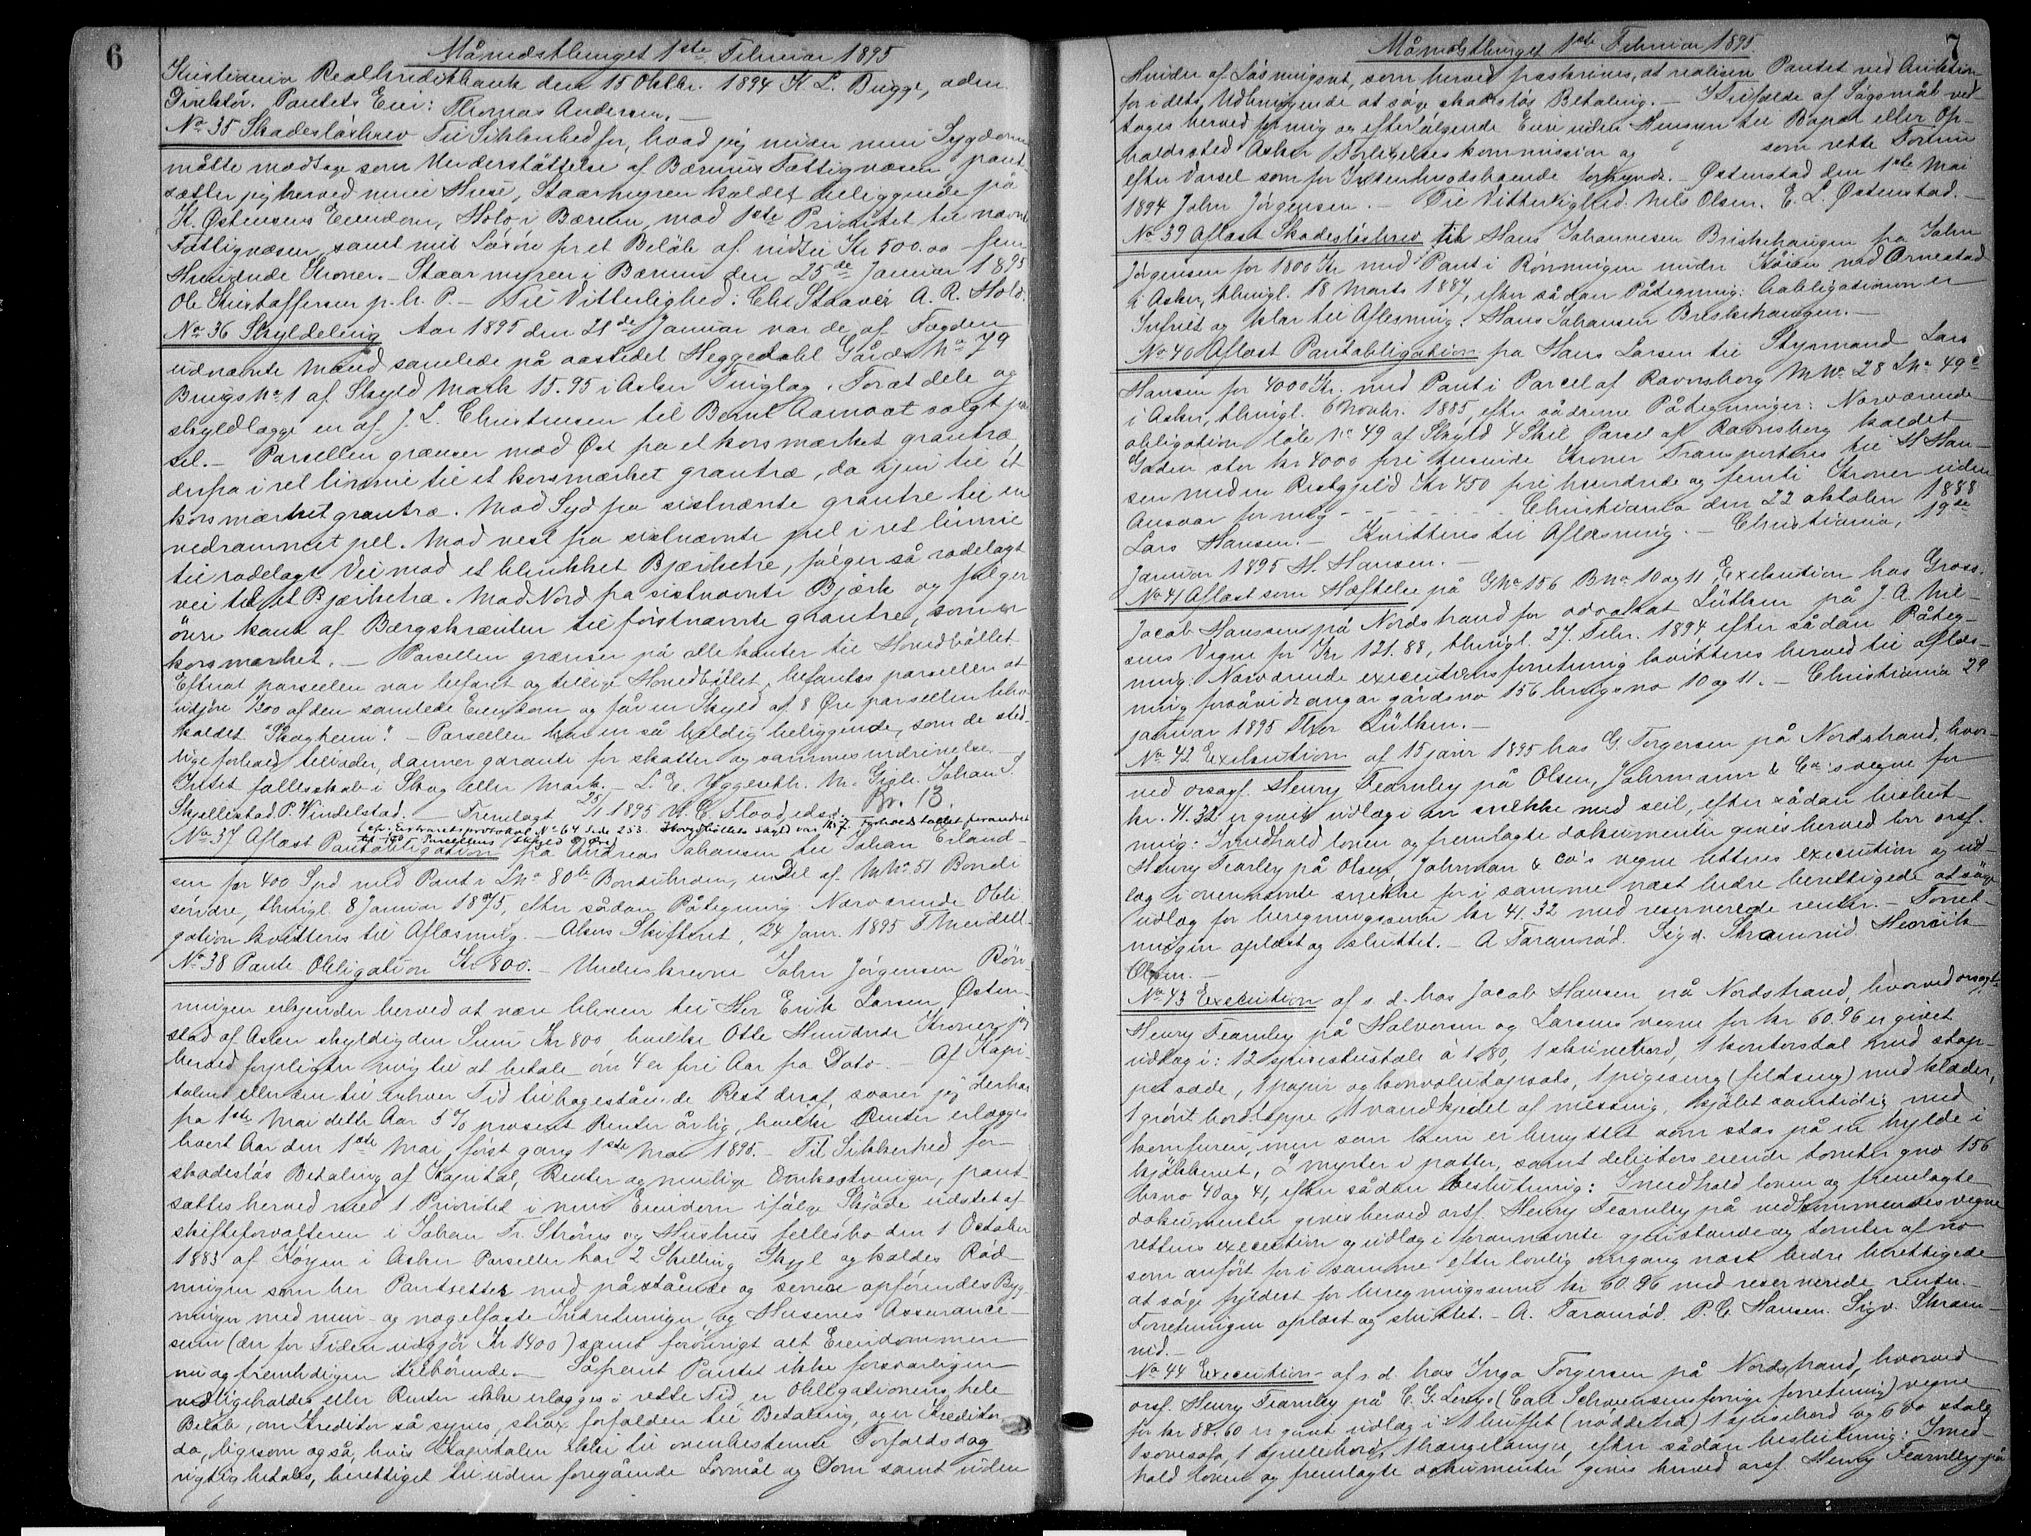 6
Månedsthinget 1ste Februar 1895
Kristiania Realkreditbank den 15 Oktbr. 1894 K L. Bugge, adm.
Direktör. Pantets Eier: Thomas Andersen. —
No 35 Skadesløsbrev Til Sikkerhed for, hvad jeg under min Sygdom
måtte modtage som Understøttelse af Bærums Fattigvæsen pant-
sætter jeg herved min Huse, Staarmyren kaldet beliggende på
K. Østensens Eiendom, Holo i Bærum, med 1ste Prioritet til nævnte
Fattigvæsen, samt mit Løsøre for et Beløb af indtil Kr 500.00 fem
Hundrede Kroner. — Staarmyren i Bærum den 25de Januar 1895
Ole Kristoffersen p. h. P. — Til Vitterlighed: Chr Staaver A. R. Hold.
No 36 Skyldeling Aar 1895 den 21de Januar var de af Fogden
udnævnte Mænd samlede på aastedet Heggedahl Gårds No 79
Brugs No 1 af Skyld Mark 15.95 i Asker Tinglag. For at dele og
skyldlægge en af J. L. Christensen til Bernt Aamodt solgt par-
sel. — Parsellen grænser mod Øst fra et korsmærket grantræ,
derfra i ret linnie til et korsmærket grantræ, da igjen til et
korsmærket grantræ. Mod Syd fra sistnævnte grantre til en
nedrammet pel. Mod vest fra sistnævnte pel i ret linnie
til rodelagt Vei mod et blinket Bjærketre, følger så rodelagt
vei til et Bjærketræ. Mod Nord fra sistnævnte Bjærk og følger
övre kant af Bærgskrænten til førstnævnte grantre, som er
korsmærket. — Parsellen grænser på alle kanter til Hovedbøllet.
Efterat parsellen var befaret og tillige Hovedbøllet, befantes parsellen at
udgjøre 1/200 af den samlede Eiendom og får en Skyld af 8 Øre parsellen blev
kaldet "Skogheim". — Parsellen har en så heldig beliggende, som de sted-
lige forhold tillader, danner garante for skatter og sammes inddrivelse. —
Intet fællesskab i Skog eller Mark. — L. E. Uggeseth. M. Gigle. Johan S.
Skjellestad. P. Windelstad. — Fremlagt 25/1 1895 U. C. Stood, edsv. Br. 13.
(cfr. Extraretsprotokol No 64 Side 253. Hovedbøllets skyld var Mk 7. Forholdstallet forandret
til 1/90 Parcellens Skyld 8 Øre)
No 37 Aflæst Pantobligation fra Andreas Johansen til Johan Erland-
sen for 400 Spd med Pant i LNo 80b Bondibraaten, en Del af MNo 51 Bondi
söndre, thingl. 8 Januar 1875, efter sådan Påtegning: Nærværende Obli
gation kvitteres til Aflæsning. — Akers Skifteret, 24 Janr. 1895 F. Mendell-
No 38 Pante Obligation Kr 800. — Underskrevne John Jørgensen Røn-
ningen erkjender herved at være bleven til Hr Erik Larsen, Østen-
stad af Asker skyldig den Sum Kr 800 hvilke Otte Hundrede Kroner jeg
herved forpligter mig til at betale om 4 er fire Aar fra Dato. — Af Kapi-
talen eller den til enhver Tid tilbagestående Rest deraf, svarer jeg derhos
fra 1ste Mai dette Aar 5% prosent Renter årlig, hvilke Renter erlægges
hvert Aar den 1ste Mai, først gang 1ste Mai 1895. — Til Sikkerhed for
skadesløs Betaling af Kapital, Renter og mulige Omkostninger, pant-
sættes herved med 1 Prioritet i min Eiendom ifølge Skjøde udstedt af
skifteforvalteren i Johan Fr. Strøms og Hustrus fellesbo den 1 October
1883 af Køyen i Asker Parseller har 2 Skilling Skyl og kaldes Rød-
ningen som her Pantsettes med påstående og senere opførendes Byg
ninger med mur- og nagelfaste Indretninger, og Husenes Assurance-
sum (der for Tiden udgjør Kr 1400) samt forøvrigt alt Eiendommen
nu og fremtidigen tilhørende. — Såfremt Pantet ikke forsvarligen
vedligeholdes eller Renter ikke erlægges i rette tid er Obligationens hele
Beløb, om Kreditor så synes, strax forfalden til Betaling, og er Kreditor
da, ligesom også, hvis Kapitalen ikke til ovenbestemte Forfaldsdag
rigtig betales, berettiget til uden foregående Lovmål og Dom samt uden
7
Månedsthinget 1ste Februar 1895.
Hinder af Løsningsret, som herved fraskrives, at realisere Pantet ved Auktion
for i dets Udbringende at søge skadesløs Betaling. — I Tilfælde af Søgsmål ved-
tages herved for mig og efterfølgende Eier uden Hensyn til Bopæl eller Op-
holdssted Asker Forligelseskommission og som rette Forum
efter Varsel som for Indenthingsboende forkyndt. — Østenstad den 1ste Mai
1894 John Jørgensen. — Til Vitterlighed: Nils Olsen. E. L. Østenstad. —
No 39 Aflæst Skadesløsbrev til Hans Johannesen Briskehaugen fra John
Jørgensen for 1800 Kr med Pant i Rønningen under Köien ved Ornestad
i Asker, thingl. 18 Marts 1887, efter sådan Påtegning: Oobligationen er
Indfriet og klar til Aflesning. Hans Johansen Briskehaugen. —
No 40 Aflæst Pantobligation fra Hans Larsen til Styrmand Lars
Hansen for 4000 Kr. med Pant i Parcel af Ravnsborg MNo 28 LNo 49c
i Asker, thingl. 6 Novbr. 1885, efter sådanne Påtegninger: Nærværende
obligation løbe No 49 af Skyld 4 Skil. Parsel af Ravnsborg kaldet
Gaden stor kr 4000 fire tusinde Kroner Transporteres til H Han-
sen med en Restgjeld Kr 450 fire hundrede og femti Kroner uden
Ansvar for mig - - - - - Christiania den 22 oktober 1888
Lars Hansen. — Kvitteres til Aflæsning. — Christiania, 19de
Januar 1895 H. Hansen. —
No 41 Aflæst som Hæftelse på GNo 156 BNo 10 og 11, Exekution hos Gross.
Jacob Hanssen på Nordstrand for advokat Lütken på J. A. Nil-
sens Vegne for Kr 121.88, thingl. 27. Febr. 1894 efter sådan Påteg-
ning: Nærværende executionsforretning kvitteres herved til aflæs-
ning forsåvidt angår gårdsno 156 brugsno 10 og 11. — Christiania 29
januar 1895 Thor Lütken. —
No 42 Exekution af 15 janr 1895 hos G. Torgersen på Nordstrand, hvor-
ved orsagf. Henry Fearnley på Olsen, Jahrmann & Co's vegne for
kr. 41.32 er givet udlæg i en snekke med seil, efter sådan beslut-
ning: I medhold loven og fremlagte dokumenter gives herved hr orsf.
Henry Fearnley på Olsen, Jahrman & co's vegne rettens execution og ud-
læg i ovennævnte snekke for i samme næst bedre berettigede at søge
udlæg for beregningssum kr 41.32 med reserverede renter. — Forret-
ningen oplæst og sluttet. — A Taranrød. Sigv. Skramrud Henrik
Olsen. —
No 43 Execution af s. d. hos Jacob Hansen på Nordstrand, hvorved orsagf.
Henry Fearnley på Halvorsen og Larsens vegne for kr 60.96 er givet
udlæg i: 12 spisestustole à 1.80, 1 skrivebord, 1 kontorstol med stop-
pet sæde, 1 papir og konvolutapsats, 1 pigeseng (feldseng) med klæder,
1 grönt bordteppe, 1 vandkjedel af messing, kjøbt samtidig med
komfuren, men som kun er benyttet som stas på en hylde i
kjøkkenet, 2 myrter i potter, samt debitors eiende tomter gno 156
brno 40 og 41, efter sådan beslutning: I medhold loven og fremlagte
dokumenter gives herved orsf. Henry Fearnley på vedkommendes vegne
rettens execution og udlæg i foranævnte gjenstande og tomter af no
som anført for i samme efter lovlig omgang næst bedre berettigede
at søge fyldest for beregningssum kr 60.96 med reserverede renter. —
Forretningen oplæst og sluttet. — A. Taranrød. P. C. Hansen. Sigv. Skram-
rud. —
No 44 Execution af s. d. hos Inga Torgersen på Nordstrand, hvorved
orsf. Henry Fearnley på C. G. Lerys (Carl Schwensens forrige forretning) vegne
for kr 88.60 er givet udlæg i: 1 buffet (nøddetræ) 1 spisebord og 6 do stole
1 sovesofa, 1 spillebord, 1 hængelampe, efter sådan beslutning: I med-
hold loven og fremlagte dokumenter gives herved orsf. Henry Fearnley på